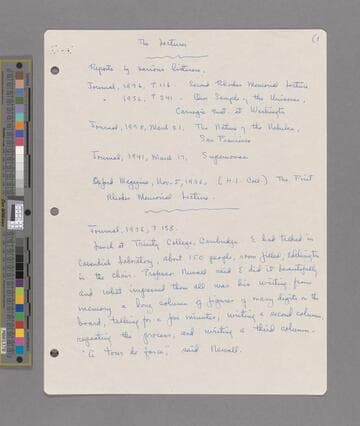 (1
The Lectures
Reports by various listeners.
Journal, 1936, P. 116. Second Rhodes Memorial Lecture
" 1932, P. 241 - Our Sample of the Universe,
Carnegie Inst. at Washington
Journal, 1938, March 21, The Nature of the Nebulae,
San Francisco
Journal, 1941, March 17, Supernovae
Oxford Magazine, Nov. 5, 1936, (H.J. ) The First
Rhodes Memorial Lecture.
Journal, 1936, P. 158.
Lunch at Trinity College, Cambridge. E had talked in
Cavendish Laboratory, about 150 people, room filled, Eddington
in the chair. Professor Newall said E did it beautifully
and what impressed them all was his writing from
memory a long column of figures of many digits on the
board, talking for a few minutes, writing a second column,
repeating the process, and writing a third column.
"A tour de force," said Newall.